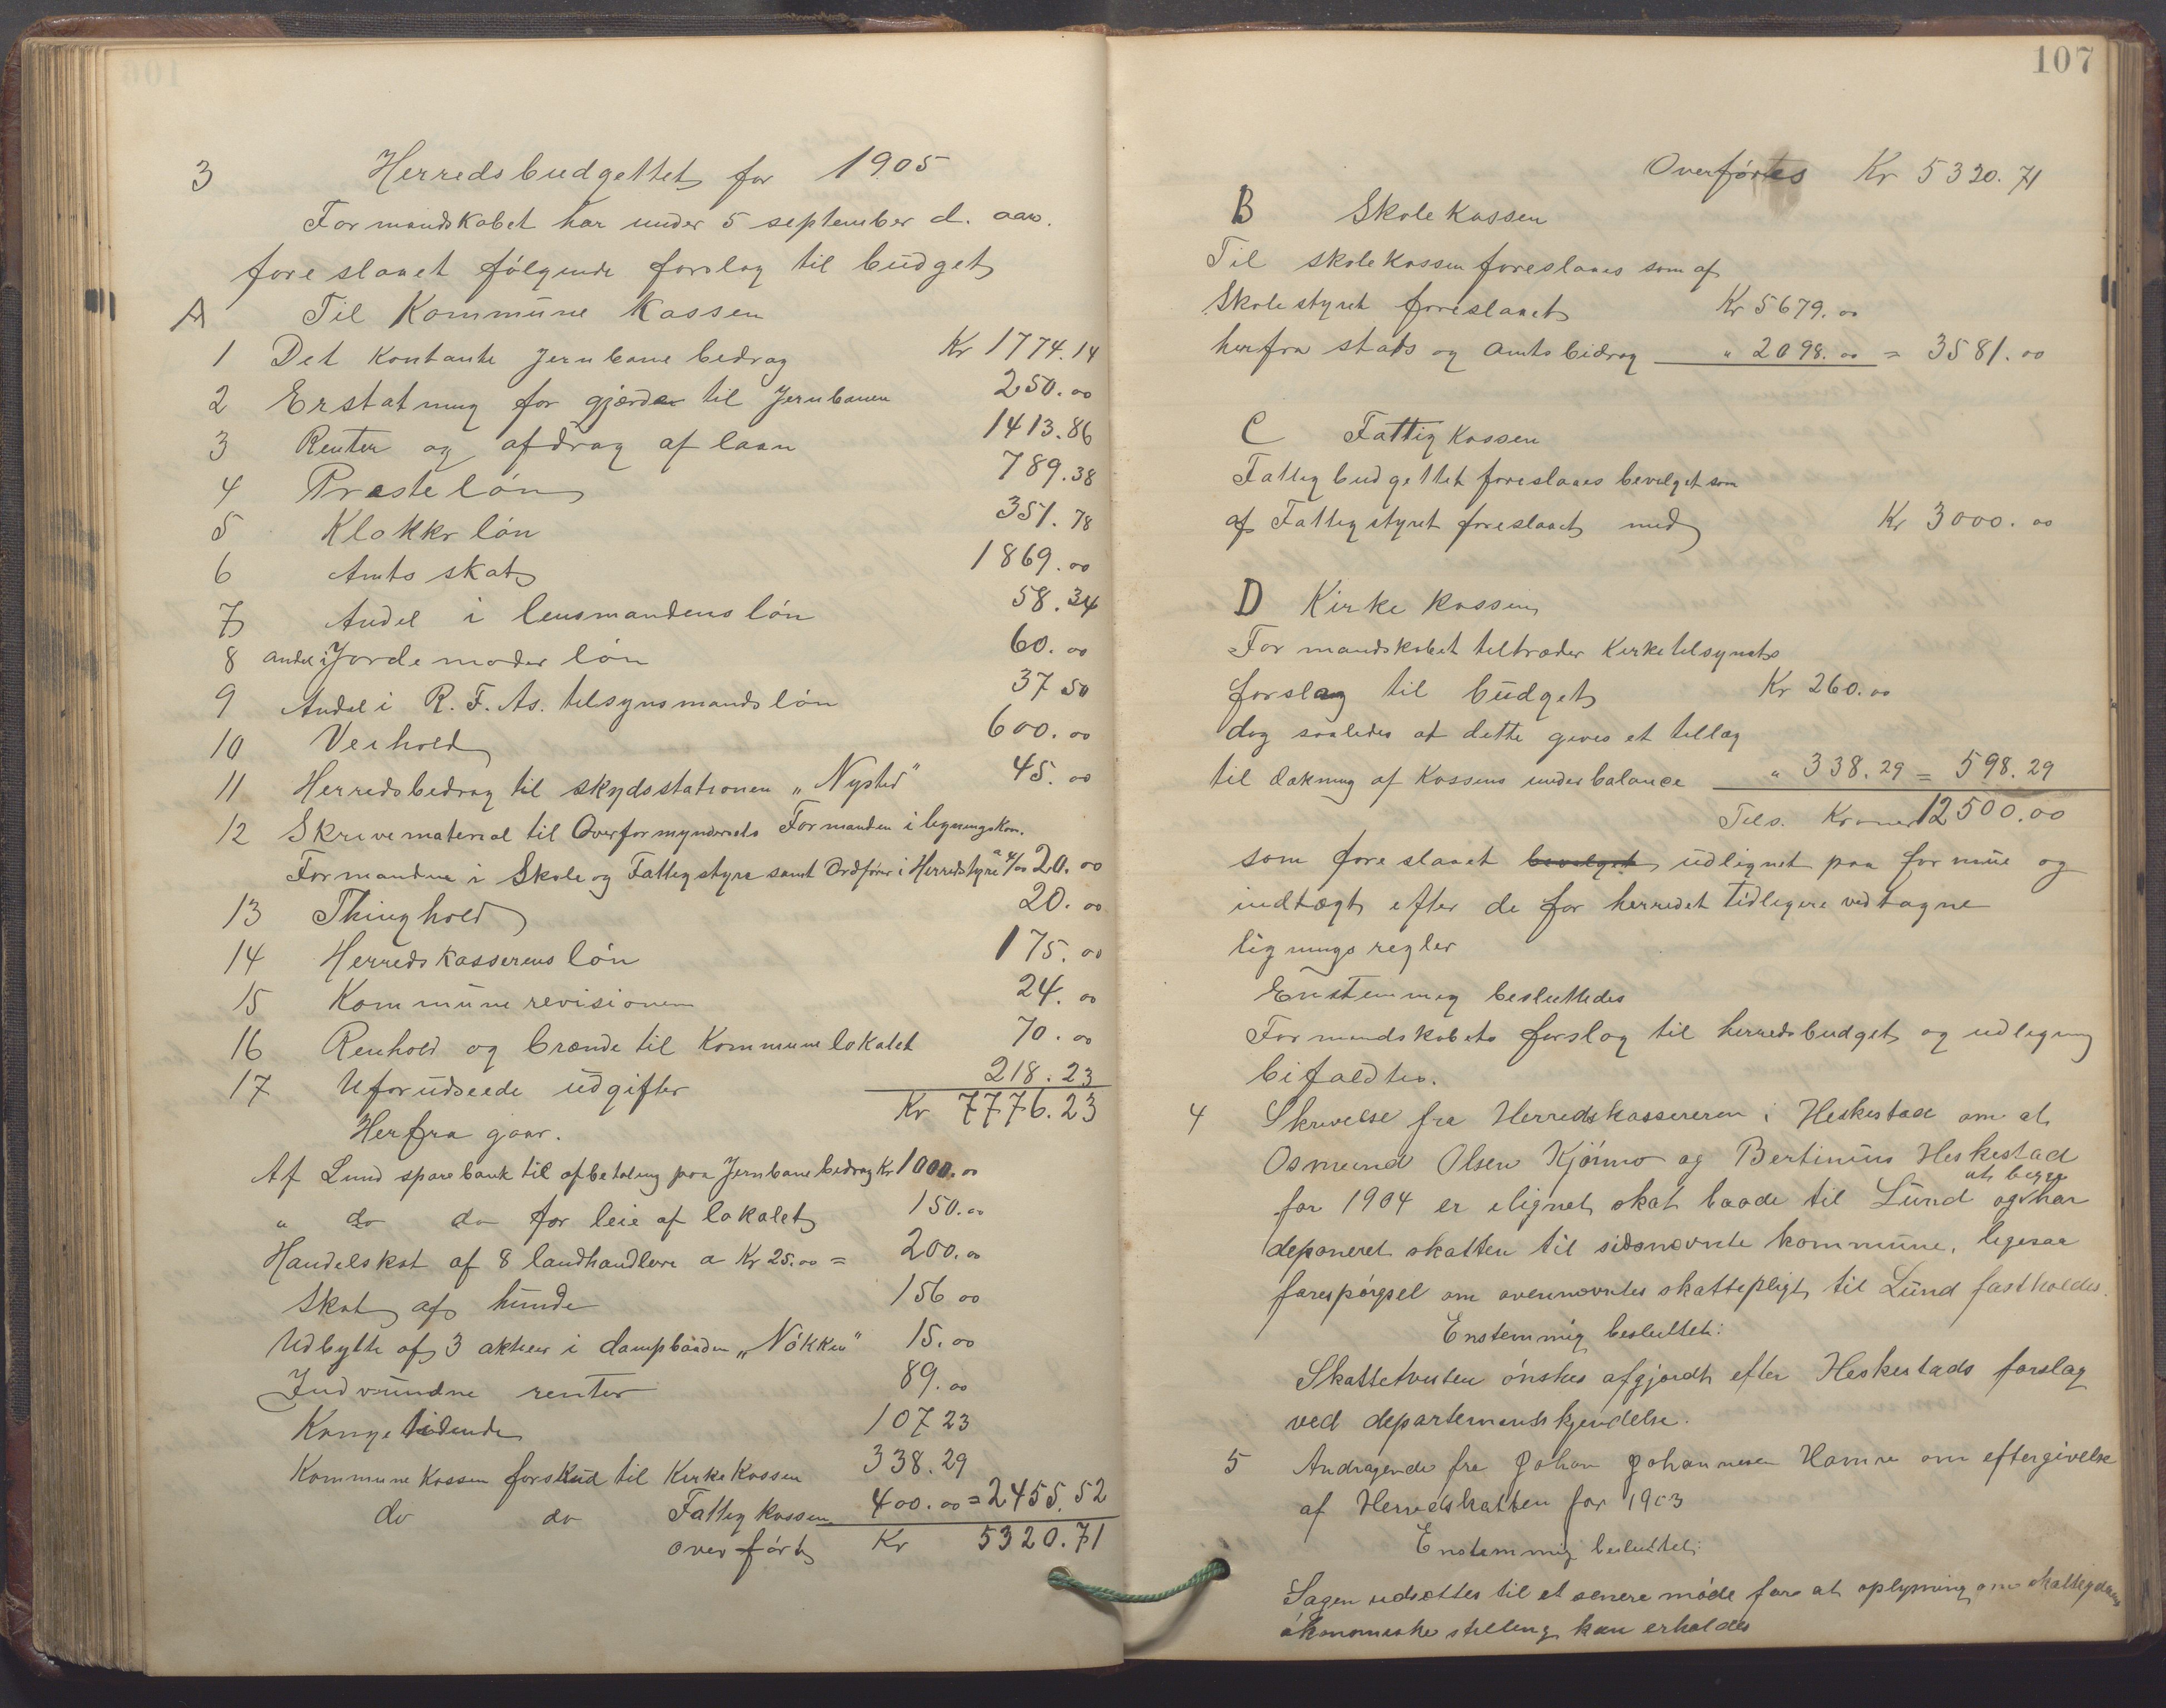 3 Herredsbudgettet for 1905
Formandskabet har under 5 september d. aar.
foreslaaet følgende forslag til budget
A Til Kommune Kassen
1 Det kontante Jernbane bedrag Kr 1774.14
2 Erstatning for gjærder til Jernbanen 250.00
3 Renter og afdrag af laan 1413.86
4 Præsteløn 789.38
5 Klokkrløn 351.78
6 Amtsskat 1869.00
7 Andel i lensmandens løn 58.34
8 andel i Jordemoder løn 60.00
9 Andel i R. F. As. tilsynsmands løn 37 50
10 Veihold 600.00
11 Herredsbedrag til skydsstationen „Nysted" 45.00
12 Skrivematerial til Overformynderiets Formanden i ligningskom.
Formandne i Skole og Fattigstyre samt Ordfører i Herredstyre a 4/00 20.00
13 Thinghold 20.00
14 Herredskasserens løn 175.00
15 Kommunerevisionen 24.00
16 Renhold og brænde til Kommunelokalet 70.00
17 Uforudseede udgifter 218.23
Kr 7776.23
Herfra gaar.
Af Lund sparebank til afbetaling paa Jernbanebidrag Kr 1000.00
" do do for leie af lokalet 150.00
Handelskat af 8 landhandlere a Kr 25.00 = 200.00
Skat af hunde 156 00
Udbytte af 3 aktier i dampbaaden „Nökken" 15.00
Indvundne renter 89.00
Kongetidende 107 23
Kommunekassen forskud til Kirkekassen 338.29
do do Fattigkassen 400.00 = 2455.52
overført Kr 5320.71
107
Overførtes Kr 5320.71
B Skolekassen
Til skolekassen foreslaaes som af
Skolestyret foreslaaet Kr 5679.00
herfra stats og Amtsbidrag " 2098.00 = 3581.00
C Fattigkassen
Fattigbudgettet foreslaaes bevelget som
af Fattigstyret foreslaaet med Kr 3000.00
D Kirkekassen
Formandskabet tiltræder Kirketilsynets
forslag til budget Kr 260.00
dog saaledes at dette gives et tillæg
til dækning af Kassens underbalance " 338.29 = 598.29
Tils. Kroner 12500.00
som foreslaaet bevelget udlignet paa formue og
indtægt efter de for herredet tidligere vedtagne
ligningsregler
Enstemmig besluttedes
Formandskabets forslag til herredsbudget og udligning
bifaldtes.
4 Skrivelse fra Herredskassereren i Heskestad om at
Osmund Olsen Kjørmo og Bertinius Heskestad
for 1904 er ilignet skat baade til Lund og at begge har
deponeret skatten til sidsnævnte kommune, ligesaa
forespørgsel om ovennævntes skattepligt til Lund fastholdes.
Enstemmig besluttet:
Skattetvisten ønskes afgjordt efter Heskestads forslag
ved departementskjendelse.
5 Andragende fra Johan Johannesen Hamre om eftergivelse
af Herredskatten for 1903
Enstemmig besluttet:
Sagen udsættes til et senere møde for at oplysning om skattegdens
økonomiske stilling kan erholdes